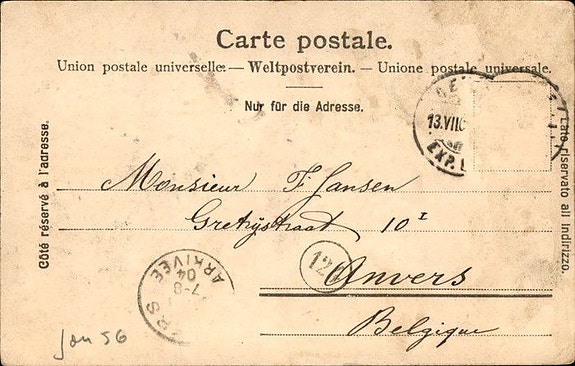 Carte postale.
Union postale universelle — Weltpostverein. — Unione postale universale.
Nur für die Adresse.
Côté réservé à l'adresse.
Lato riservato all indirizzo.
GE
13.VII
EXP. L
Monsieur F. Jansen
Gretrystraat 10 I
Anvers
Belgique
ARRIVÉE
04
7-8
ERS